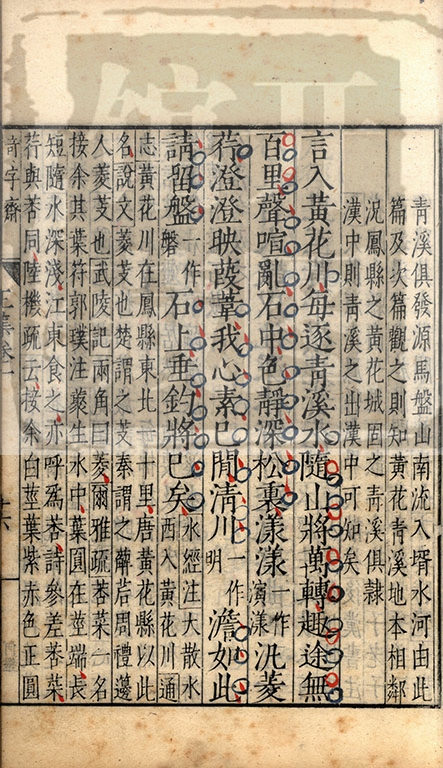 青溪俱發源馬盤山南流入壻水河由此
篇及次篇觀之則知黃花青溪地本相鄰
況鳳縣之黃花城固之青溪俱隸
漢中則青溪之出漢中可知矣
言入黃花川每逐青溪水隨山將萬轉趣途無
百里聲喧亂石中色靜深松裏漾漾一作演漾汎菱
荇澄澄映葭葦我心素已閒清川一作明澹如此
請留盤一作磐石上垂釣將已矣水經注大散水西入黃花川通
志黃花川在鳳縣東北一十里唐黃花縣以此
名說文菱芰也楚謂之芰秦謂之薢茩周禮籩
人菱芰也武陵記兩角曰菱爾雅疏莕菜一名
接余其葉符郭璞注藂生水中葉圓在莖端長
短隨水深淺江東食之亦呼爲莕詩參差荇菜
荇與莕同陸機疏云接余白莖葉紫赤色正圓
奇字齋 王集卷一